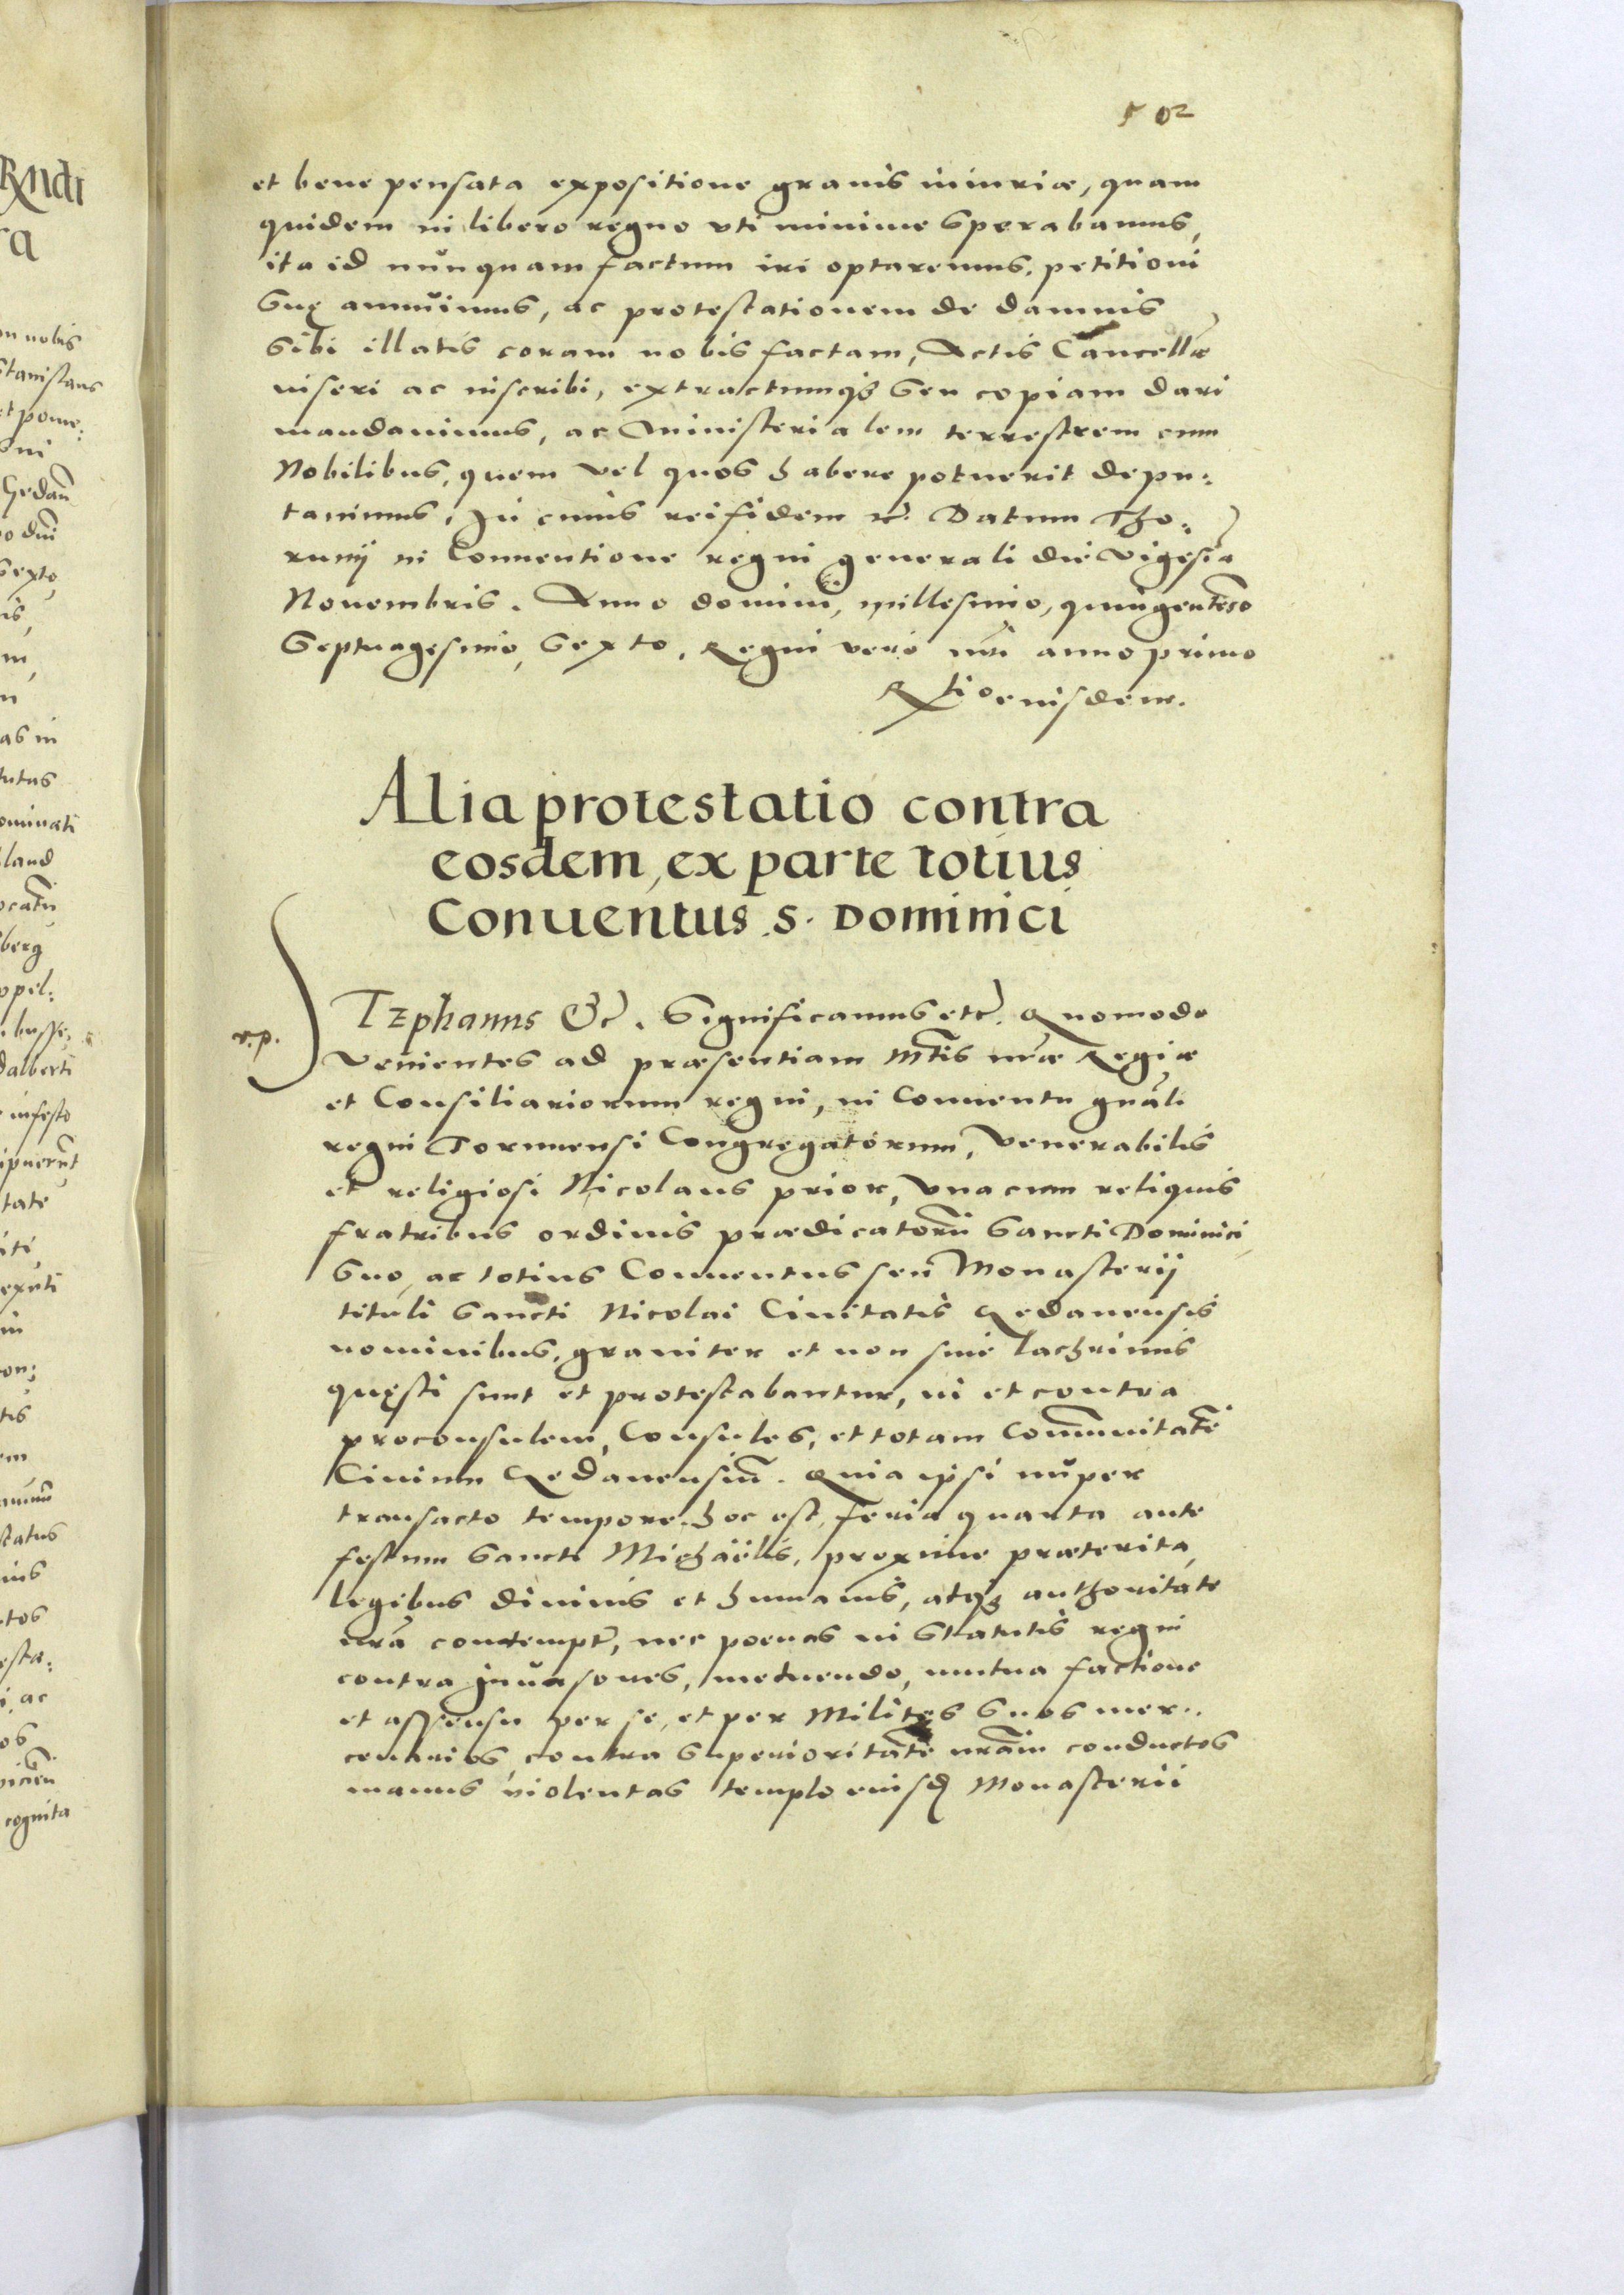 502
et bene pensata expositione grauis iniuriæ, quam
quidem in libero regno vti minime sperabamus,
ita id nunquam factum iri optaremus, petitioni
suę annuimus, ac protestationem de damnis
sibi illatis coram nobis factam, Actis Cancellæ
inseri ac inscribi, extractumq₃ seu copiam dari
mandauimus, ac Ministerialem terrestrem cum
Nobilibus, quem vel quos habere potuerit depu:
tauimus. In cuius rei fidem etc. Datum Tho:
runij in Conuentione regni generali die Vigesia
Nouembris. Anno domini, millesimo, quingenteso
Septuagesimo, Sexto. Regni vero nri anno primo
Rtio eiusdem.
Alia protestatio contra
eosdem, ex parte totius
Conuentus S. Dominici
STephanus &c. Significamus etc. Quomodo
r.p.
Venientes ad præsentiam Mtis nræ Regiæ
et Consiliariorum regni, in Conuentu gnali
regni Torunensi Congregatorum, Venerabilis
et religiosi Nicolaus prior, vna cum reliquis
fratribus ordinis prædicatorū Sancti Dominici
suo, ac totius Conuentus seu Monasterij
tituli Sancti Nicolai Ciuitatis Gedanensis
nominibus, grauiter et non sine lachrimis
quęsti sunt et protestabantur, in et contra
proconsulem, Consules, et totam Communitatē
Ciuium Gedanensiū. Quia ipsi nuper
transacto tempore, hoc est, feria quarta ante
festum Sancti Michaëlis, proxime præterita,
legibus diuinis et humanis, atq₃ authoritate
nrā contempt, nec poenas in Statutis regni
contra Inuasores, metuendo, mutua factione
et assensu per se, et per Milites suos mer:
cenarios, contra superioritatē nrām conductos
manus violentas templo eiusd Monasterii